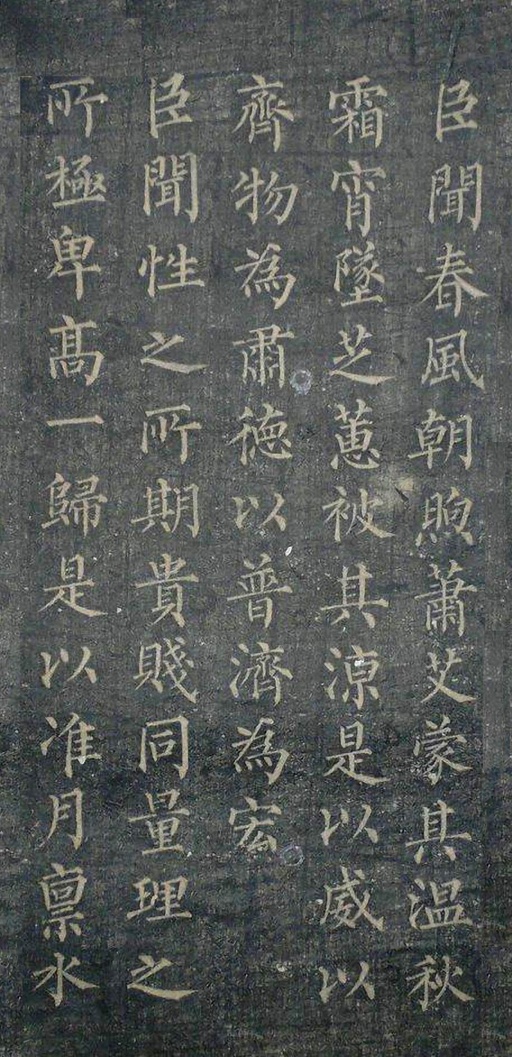 臣聞春風朝煦蕭艾蒙其温秋
霜宵墜芝蕙被其涼是以威以
齊物為肅德以普濟為宏
臣聞性之所期貴賤同量理之
所極卑髙一歸是以准月稟水